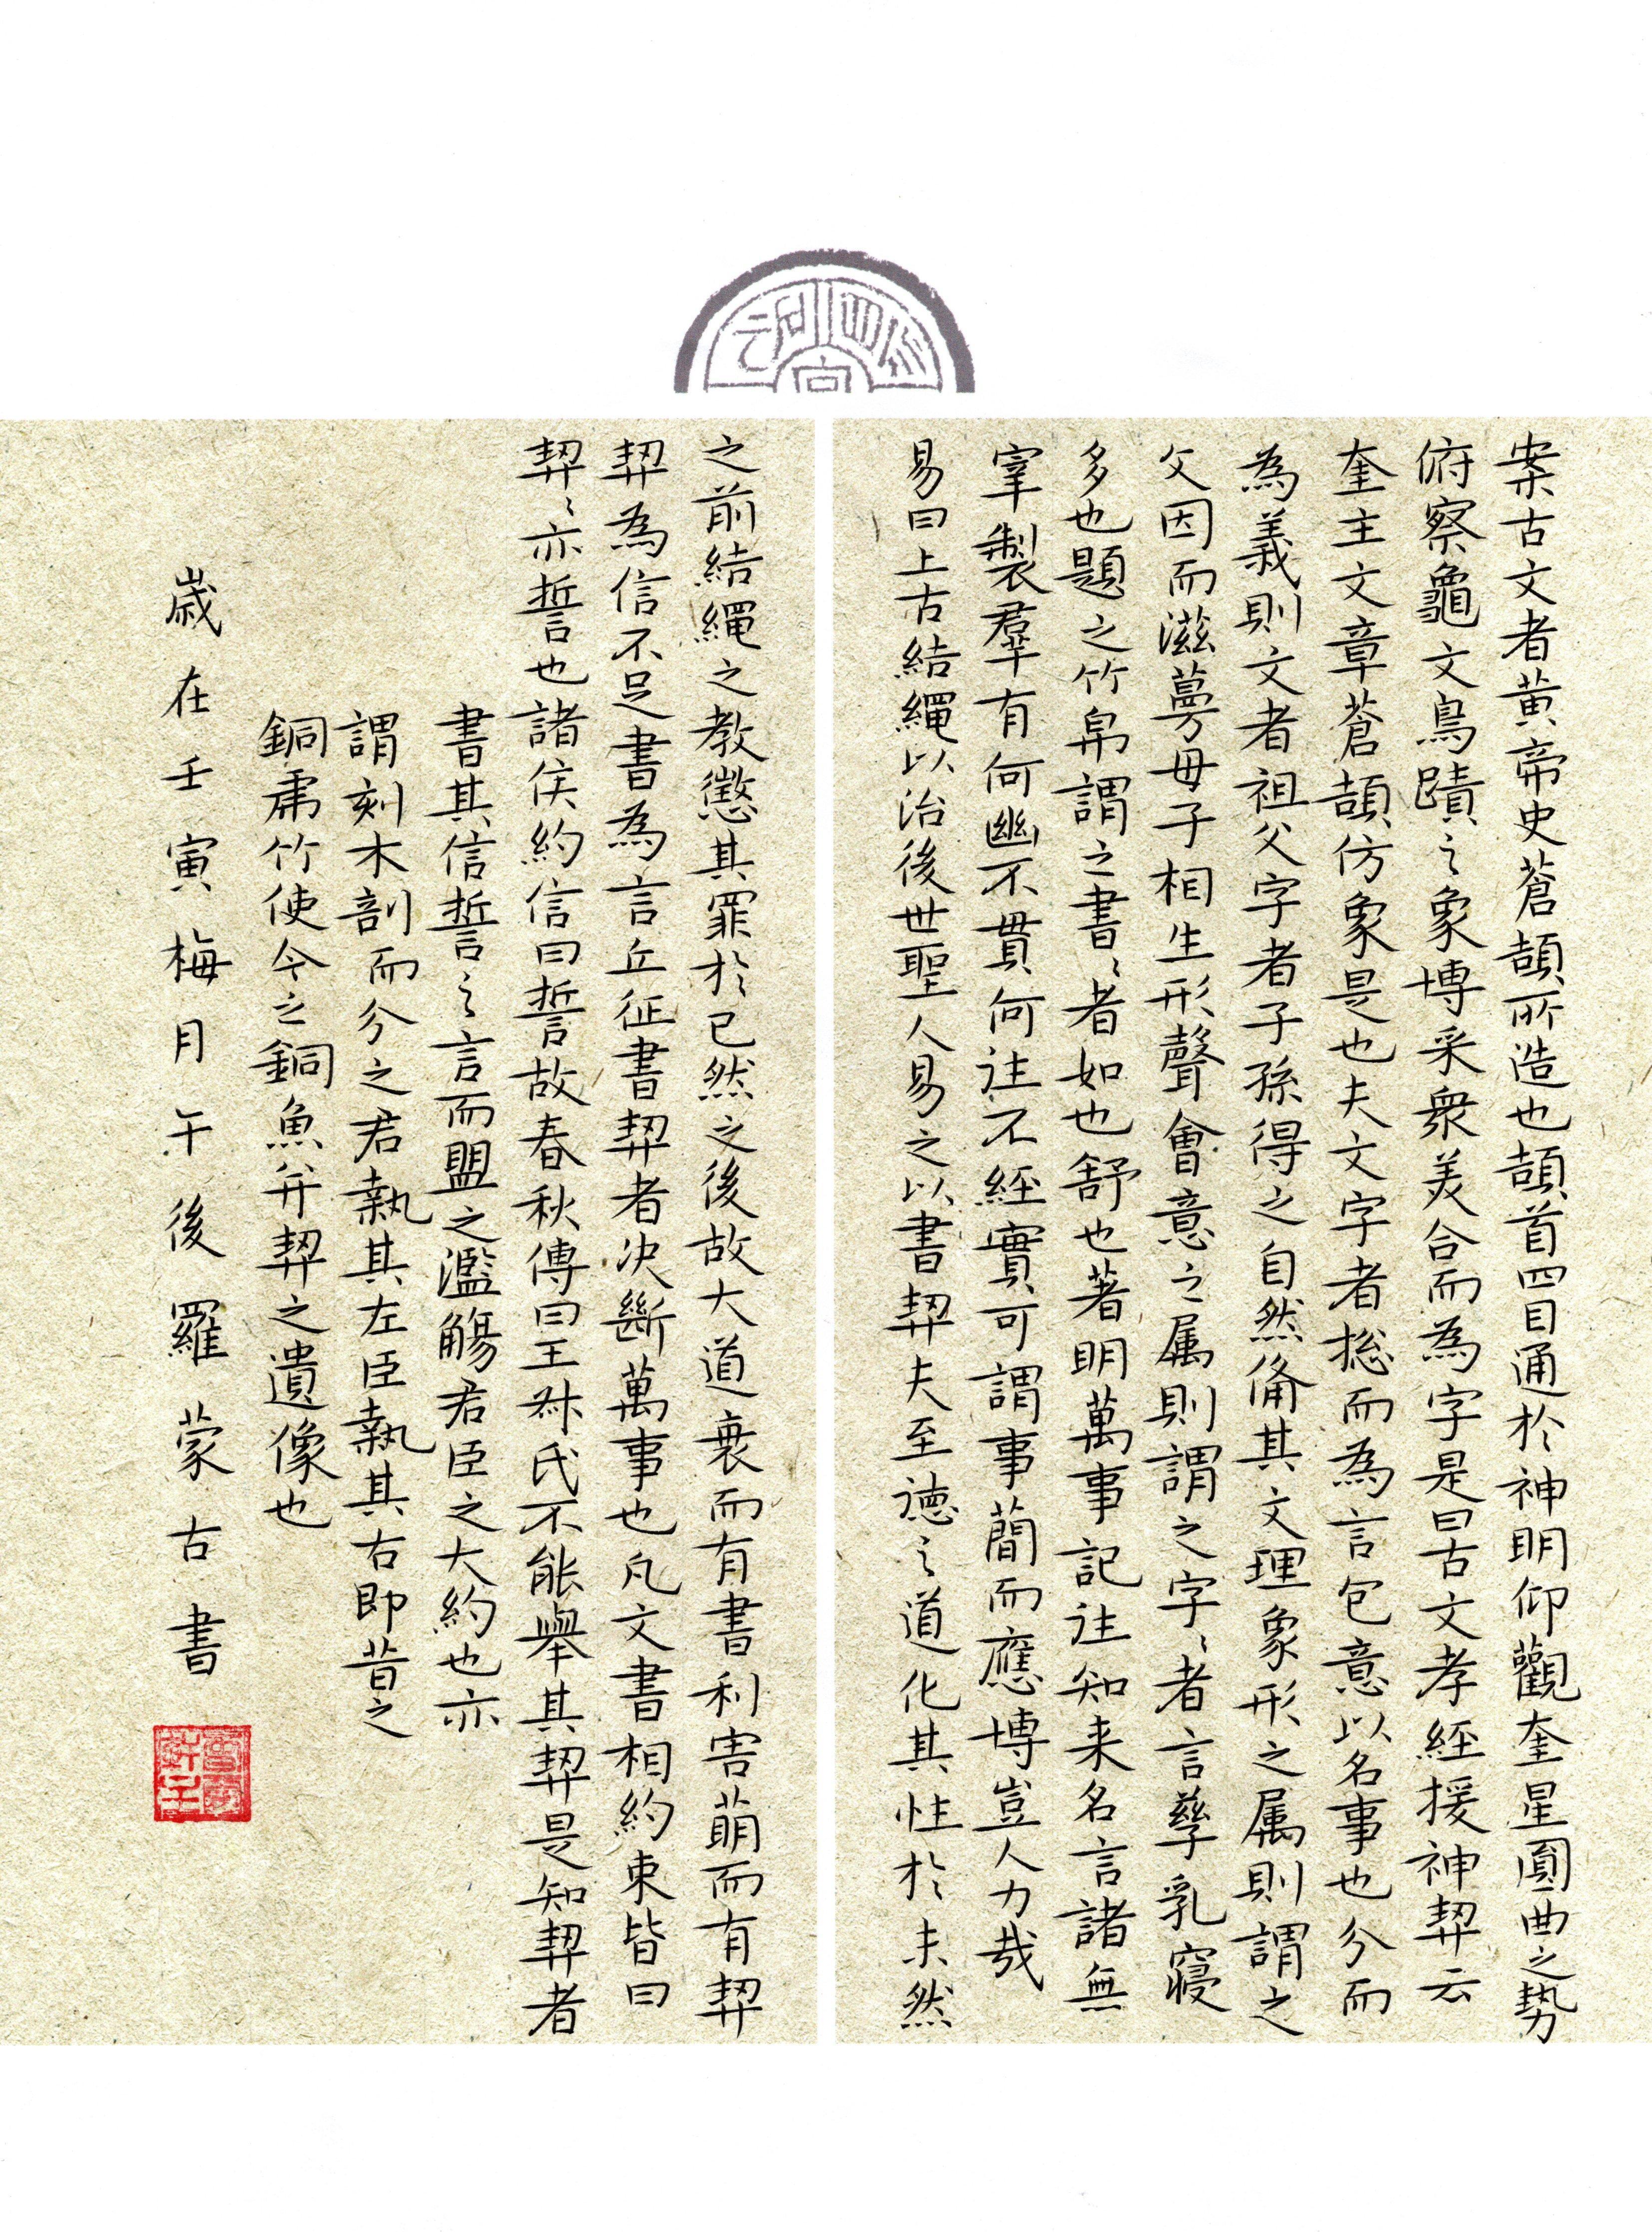 案古文者黄帝史蒼頡所造也頡首四目通於神明仰觀奎星圓曲之勢
俯察龜文鳥蹟之象博采衆美合而為字是曰古文孝經援神契云
奎主文章蒼頡仿象是也夫文字者捴而為言包意以名事也分而
為義則文者祖父字者子孫得之自然俻其文理象形之属則謂之
文因而滋蔓母子相生形聲會意之属則謂之字〻者言孳乳寖
多也題之竹帛謂之書〻者如也舒也著明萬事記注知来名言諸無
宰製羣有何幽不貫何注不經實可謂事簡而應博豈人力哉
易曰上古結繩以治後世聖人易之以書契夫至德之道化其性於未然
之前結繩之教懲其罪於已然之後故大道衰而有書利害萌而有契
契為信不足書為言丘征書契者决斷萬事也凡文書相約束皆曰
契〻亦誓也諸侯約信曰誓故春秋傳曰王叔氏不能舉其契是知契者
書其信誓之言而盟之濫觴君臣之大約也亦
謂刻木剖而分之君執其左臣執其右即昔之
銅虎竹使今之銅魚并契之遺像也
歲在壬寅梅月午後羅蒙古書